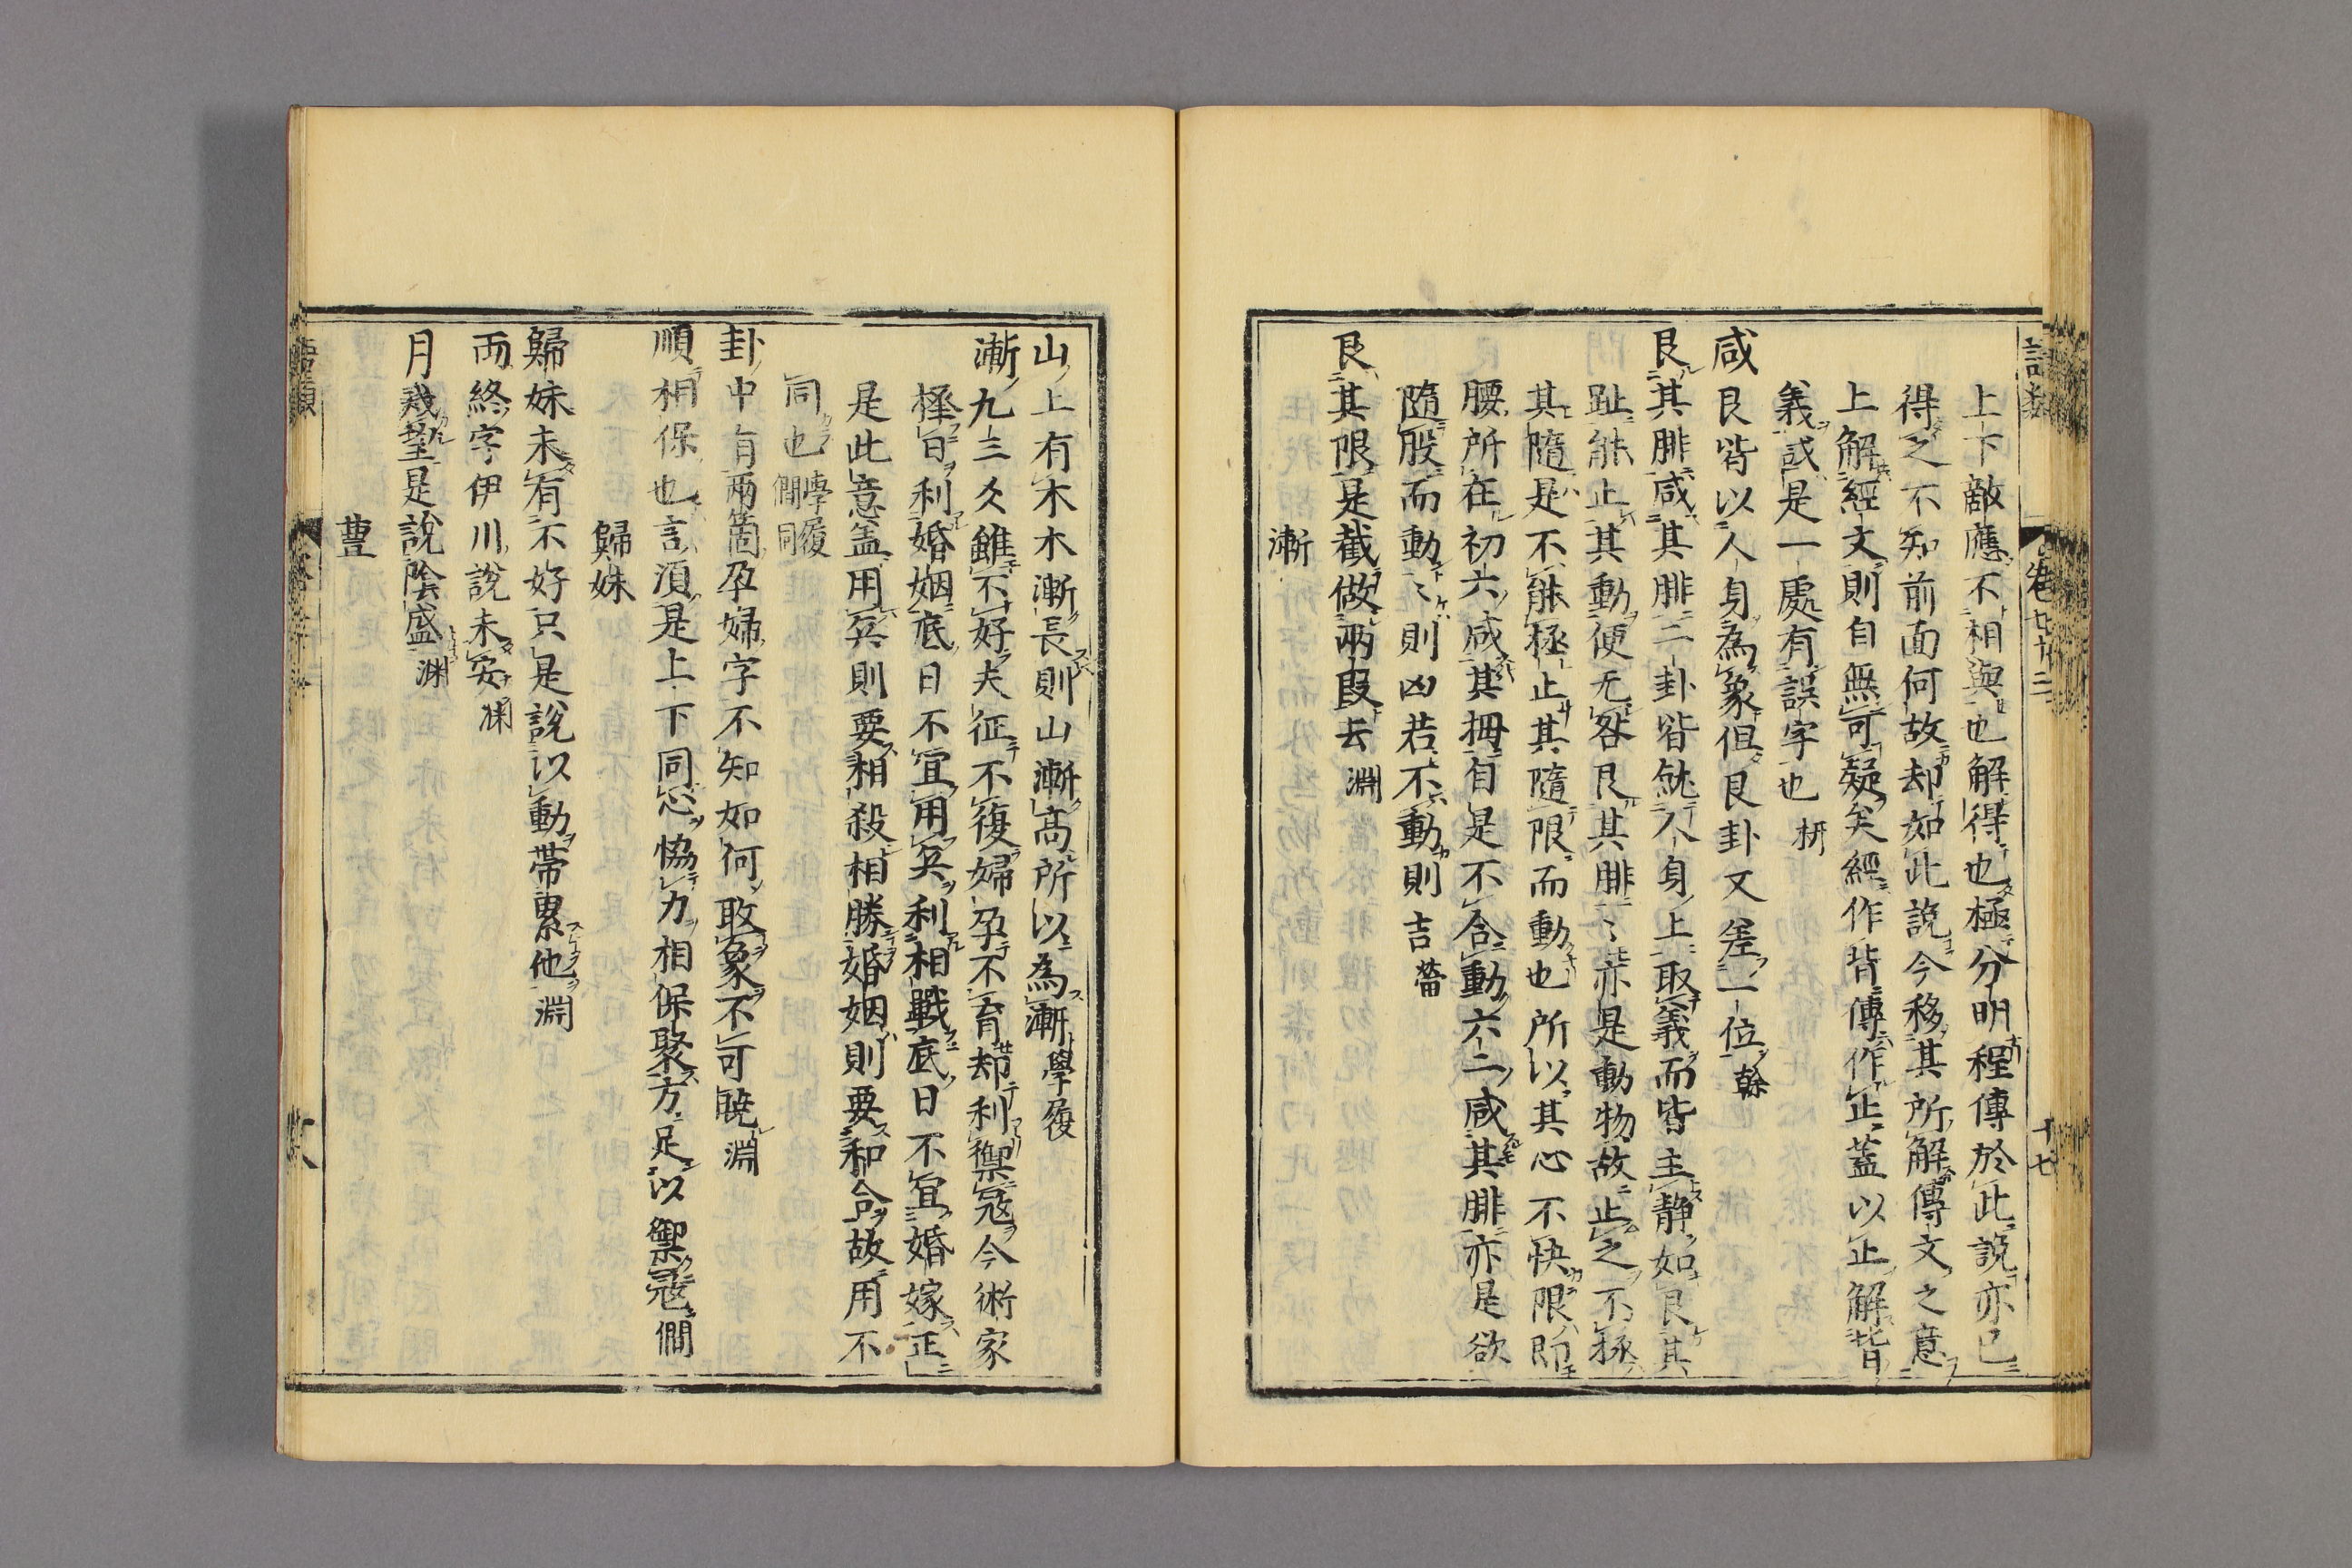 上下敵應不相與也解得也極分明程傳於此說亦已
得之不知前面何故却如此說今移其所解傳文之意
上解經文則自無可疑矣經作背傳作止蓋以止解背
義或是一處有誤字也
咸艮皆以人身為象但艮卦又差一位
艮其腓咸其腓二卦皆就人身上取義而皆主靜如艮其
趾能止其動便无咎艮其腓〻亦是動物故止之不拯
其隨是不能拯止其隨限而動也所以其心不快限即
腰所在初六咸其拇自是不合動六二咸其腓亦是欲
隨股而動〻則凶若不動則吉𦺋
艮其限是截做兩段去 淵
漸
山上有木木漸長則山漸高所以為漸 學履
漸九三爻雖不好夫征不復婦孕不育却利禦寇今術家
擇日利婚姻底日不宜用兵利相戰底日不宜婚嫁正
是此意盖用兵則要相殺相勝婚姻則要和合故用不
同也 學履 僩同
卦中有兩箇孕婦字不知如何取象不可曉 淵
順相保也言須是上下同心協力相保聚方足以禦寇 僩
歸妹
歸妹未有不好只是說以動帶累他 淵
兩終字伊川說未安 淵
月幾望是說陰盛 淵
豊
語類
十七